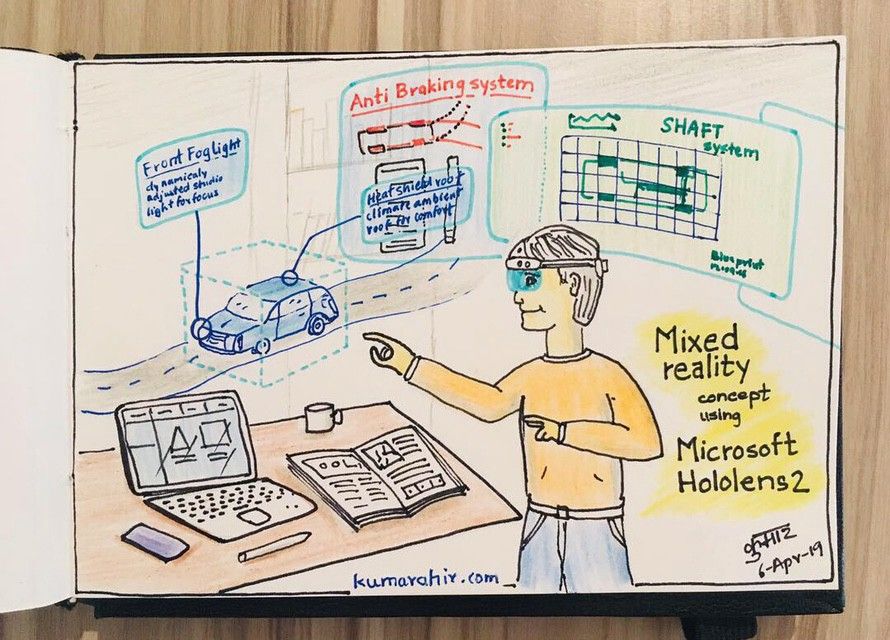 Anti Braking system
Front Foglight
dynamicaly
adjusted studio
light for focus
Heatshield roof
climate ambient
roof for comfort
SHAFT
system
Blueprint
Mixed
reality
concept
using
Microsoft
Hololens2
6-Apr-19
kumarahir.com